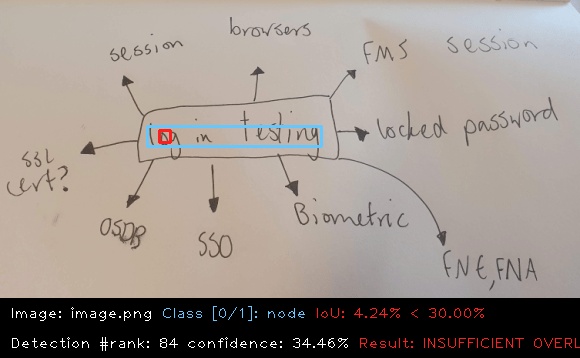 session
browsers
FMS session
log in testing
locked password
SSL
cert?
OSDB
SSO
Biometric
FNE, FNA
Image: image.png Class [0/1]: node IoU: 4.24% < 30.00%
Detection #rank: 84 confidence: 34.46% Result: INSUFFICIENT OVERL